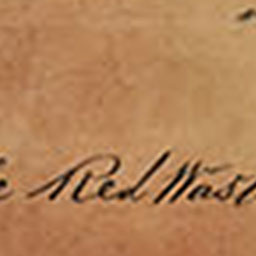 e Red Was